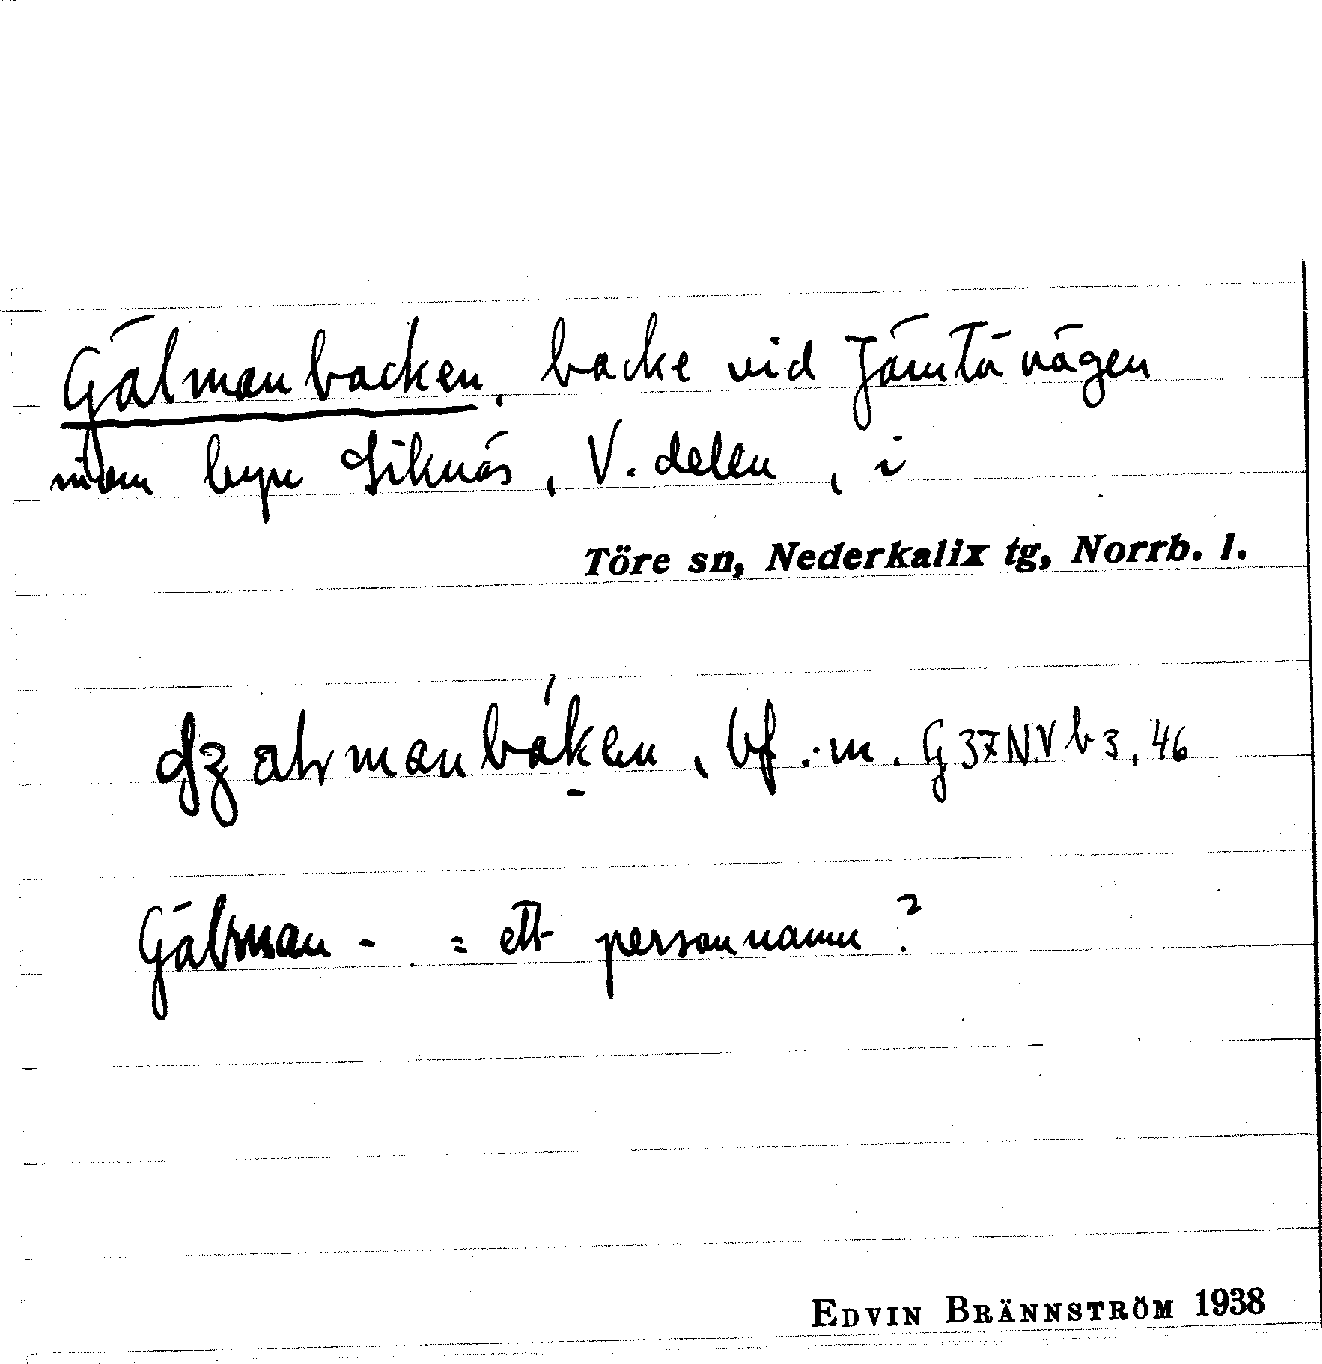 Gälmanbacken, backe vid Jämtövägen
inom byn Siknäs, V. delen, i
Töre sn, Nederkalix tg, Norrb. l.
bf. m. G 37 NV b 3, 46
Gälman- = ett personnamn?
EDVIN BRÄNNSTRÖM 1938